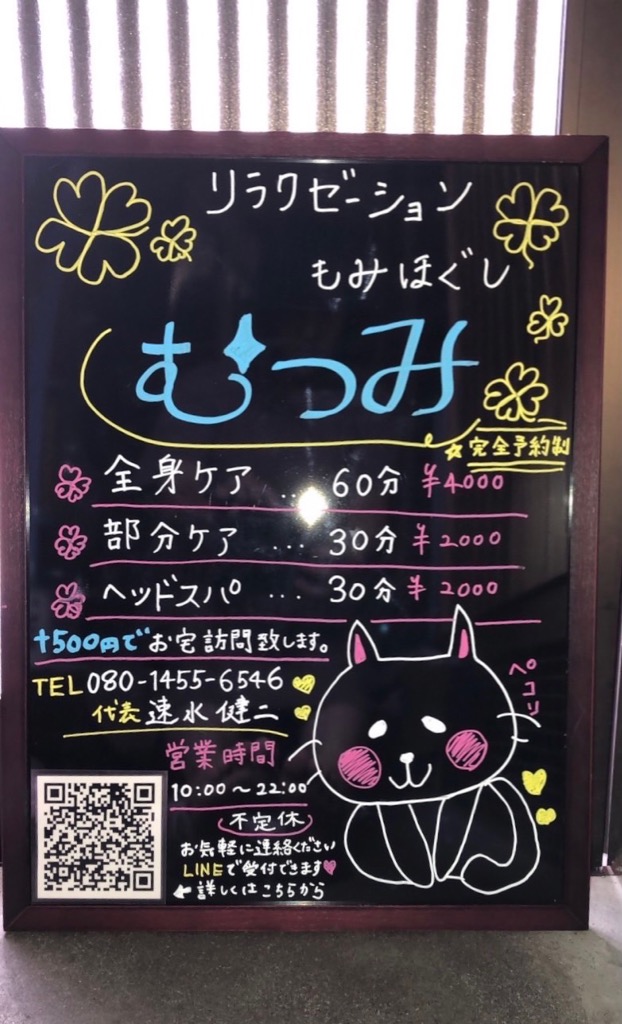 リラクゼーション
もみほぐし
むつみ
☆完全予約制
全身ケア … 60分 ¥4000
部分ケア … 30分 ¥2000
ヘッドスパ … 30分 ¥2000
+500円でお宅訪問致します。
TEL 080-1455-6546
代表 速水健二
ペコリ
営業時間
10:00〜22:00
不定休
お気軽に連絡ください
LINEで受付できます♥
←詳しくはこちらから